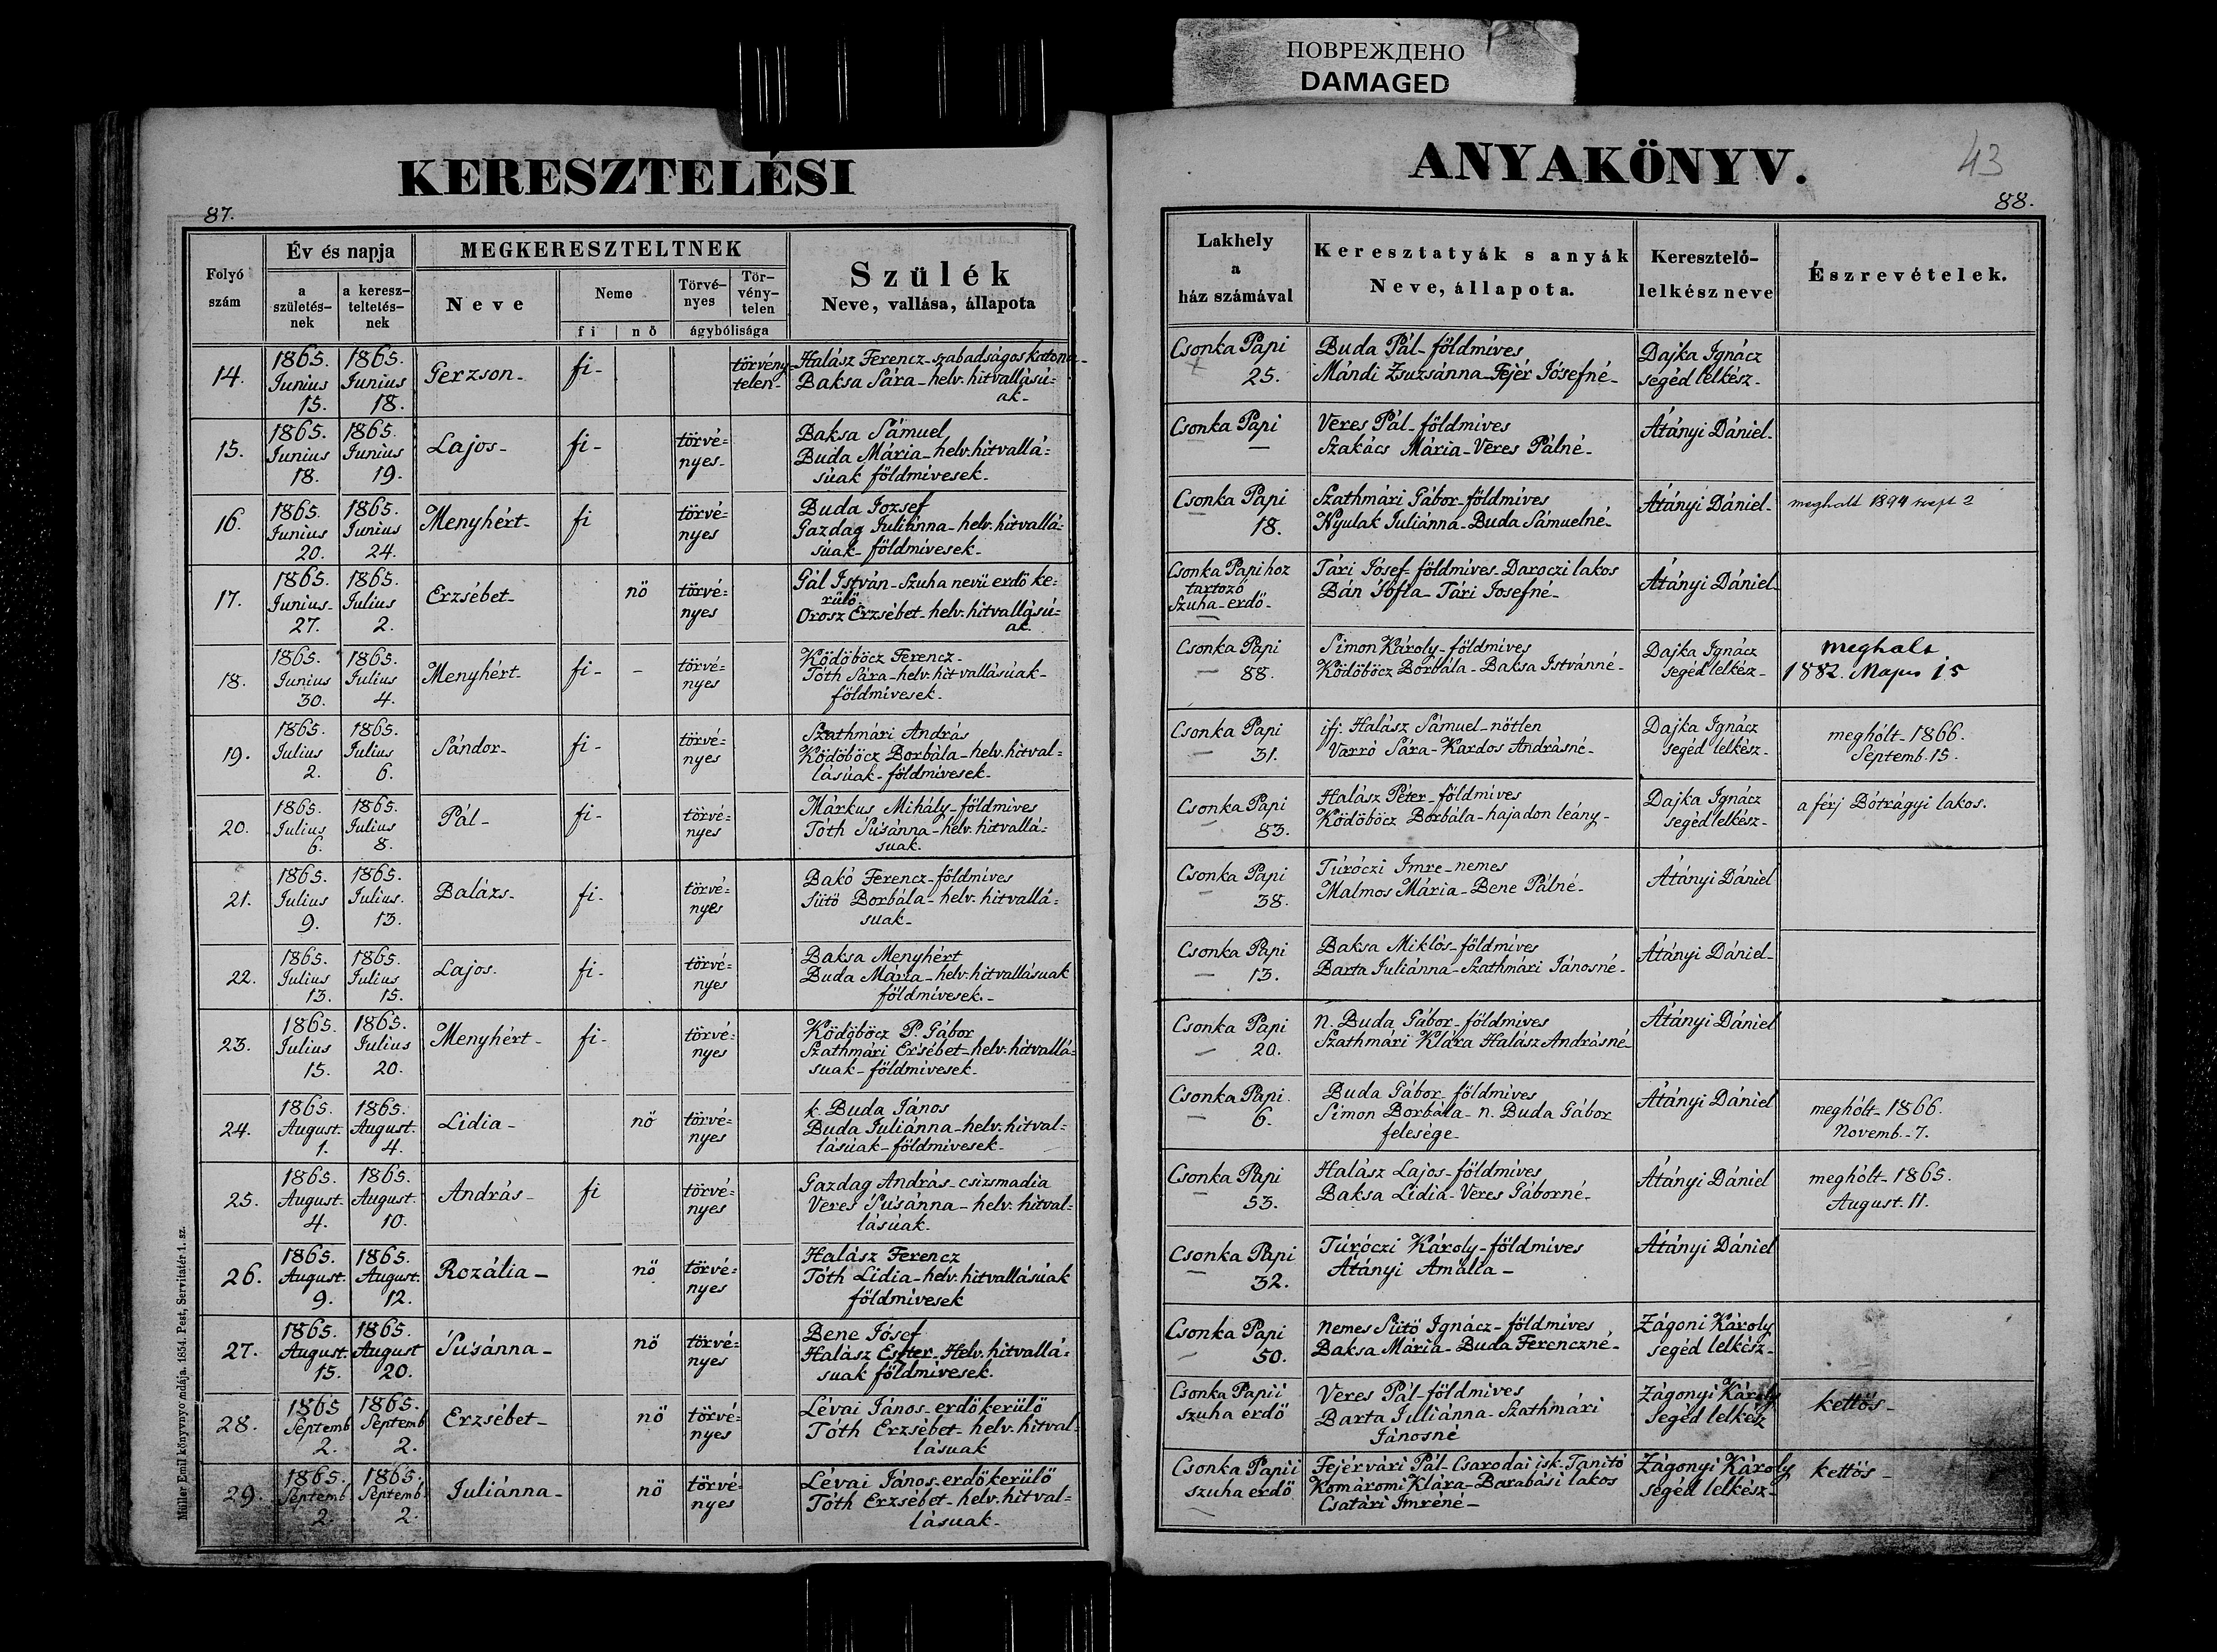 ПОВРЕЖДЕНО
DAMAGED
KERESZTELÉSI
87.
Folyó
szám
Év és napja
a
születés–
nek
a keresz–
teltetés–
nek
MEGKERESZTELTNEK
Neve
Neme
fi
nö
Törvé–
nyes
Tör–
vény–
telen
ágybólisága
Szülék
Neve, vallása, állapota
14.
1865.
Junius
15.
1865.
Junius
18.
Gerzson-
fi-
törvény-
telen-
Halász Ferencz-szabadságos katona-
Baksa Sára-helv. hitvallású-
ak-
15.
1865.
Junius
18.
1865.
Junius
19.
Lajos-
fi-
törvé=
nyes-
Baksa Sámuel
Buda Mária-helv. hitvallá=
súak földmivesek.
16.
1865.
Junius
20.
1865.
Junius
24.
Menyhért-
fi
törvé=
nyes
Buda Jozsef
Gazdag Juliánna-helv. hitvallá=
súak-földmivesek-
17.
1865.
Junius-
27.
1865.
Julius
2.
Erzsébet-
nö
törvé=
nyes
Gál István-Szuha nevü erdö ke=
rülö.
Orosz Erzsébet-helv. hitvallású=
ak.
18.
1865.
Junius
30.
1865.
Julius
4.
Menyhért-
fi-
-
törvé=
nyes
Ködöböcz Ferencz-
Tóth Sára-helv. hitvallásúak-
földmivesek-
19.
1865.
Julius
2.
1865.
Julius
6.
Sándor-
fi-
törvé=
nyes
Szathmári András
Ködöböcz Borbála-helv. hitval=
lásúak-földmivesek-
20.
1865.
Julius
6.
1865.
Julius
8.
Pál-
fi-
törvé=
nyes
Márkus Mihály-földmives
Tóth Susánna-helv. hitvallá=
suak.
21.
1865.
Julius
9.
1865.
Julius.
13.
Balázs-
fi-
törvé=
nyes
Bakó Ferencz-földmives
Sütö Borbála-helv. hitvallá=
suak-
22.
1865.
Julius
13.
1865.
Julius
15.
Lajos.
fi-
törvé=
nyes
Baksa Menyhért
Buda Mária-helv. hitvallásuak
földmivesek.-
23.
1865.
Julius
15.
1865.
Julius
20.
Menyhért-
fi-
törvé=
nyes
Ködöböcz P. Gábor
Szathmári Ersébet-helv. hitvallá=
suak-földmivesek-
24.
1865.
August.
1.
1865.
August.
4.
Lidia-
nö
törvé=
nyes
k. Buda János
Buda Juliánna-helv. hitval=
lásúak-földmivesek-
25.
1865.
August.
4.
1865.
August.
10.
András-
fi
törvé=
nyes
Gazdag András-csizsmadia
Veres Susánna-helv. hitval=
lásúak.
26.
1865.
August.
9.
1865.
August.
12.
Rozália-
nö
törvé=
nyes
Halász Ferencz
Tóth Lidia-helv. hitvallásúak
földmivesek
27.
1865.
August.
15.
1865.
August
20.
Susánna-
nö
törvé=
nyes
Bene Jósef
Halász Eszter-Helv. hitvallá=
suak földmivesek.
28.
1865
Septemb
2.
1865.
Septemb
2.
Erzsébet-
nö
törvé=
nyes
Lévai János-erdökerülö
Tóth Erzsébet-helv. hitval=
lásuak
29.
1865.
Septemb
2.
1865.
Septemb.
2.
Juliánna-
nö
törvé=
nyes
Lévai János-erdökerülö
Tóth Erzsébet-helv. hitval=
lásuak-
Müller Emil könyvnyomdája. 1854. Pest, Servitatér 1. sz.
ANYAKÖNYV.
43
88.
Lakhely
a
ház számával
Keresztatyák s anyák
Neve, állapota.
Keresztelő–
lelkész neve
Észrevételek.
Csonka Papi
25.
Buda Pál-földmives
Mándi Zsuzsánna-Fejér Jósefné-
Dajka Ignácz
segéd lelkész-
Csonka Papi
—
Veres Pál-földmives
Szakács Mária-Veres Pálné-
Átányi Dániel-
Csonka Papi
18.
Szathmári Gábor-földmives
Nyulak Juliánna-Buda Sámuelné-
Átányi Dániel-
meghalt 1894 szept 2
Csonka Papihoz
tartozó
Szuha-erdö-
Tári Jósef-földmives-Daroczi lakos
Bán Sófia-Tári Josefné-
Átányi Dániel-
Csonka Papi
88.
Simon Károly-földmives
Ködöböcz Borbála-Baksa Istvánné-
Dajka Ignácz
segéd lelkész-
meghalt
1882. Majus 15
Csonka Papi
31.
ifj. Halász Sámuel-nötlen
Varró Sára-Kardos Andrásné-
Dajka Ignácz
segéd lelkész-
meghólt-1866.
Septemb. 15.
Csonka Papi
83.
Halász Péter-földmives
Ködöböcz Borbála-hajadon leány-
Dajka Ignácz
segéd lelkész-
a férj Bótrágyi lakos.
Csonka Papi
38.
Túróczi Imre-nemes
Malmos Mária-Bene Pálné-
Átányi Dániel
Csonka Papi
13.
Baksa Miklós-földmives
Barta Juliánna-Szathmári Jánosné-
Átányi Dániel-
Csonka Papi
20.
N. Buda Gábor-földmives
Szathmári Klára Halász Andrásné-
Átányi Dániel
Csonka Papi.
6.
Buda Gábor-földmives
Simon Borbála-n. Buda Gábor
felesége-
Átányi Dániel
meghólt-1866.
Novemb.-7.
Csonka Papi
53.
Halász Lajos-földmives
Baksa Lidia-Veres Gáborné-
Átányi Dániel
meghólt-1865.
August. 11.
Csonka Papi
32.
Túróczi Károly-földmives
Átányi Amália-
Átányi Dániel
Csonka Papi
50.
Nemes Sütö Ignácz-földmives
Baksa Mária-Buda Ferenczné-
Zágoni Károly
segéd lelkész-
Csonka Papii
szuha erdö
Veres Pál-földmives
Barta Juliánna-Szathmári
Jánosné
Zágonyi Károly
segéd lelkész
kettös-
Csonka Papii
szuha erdö
Fejérvári Pál-Csarodai isk. Tanitó
Komáromi Klára-Barabási lakos
Csatári Imréné-
Zágonyi Károly
segéd lelkész-
kettös-